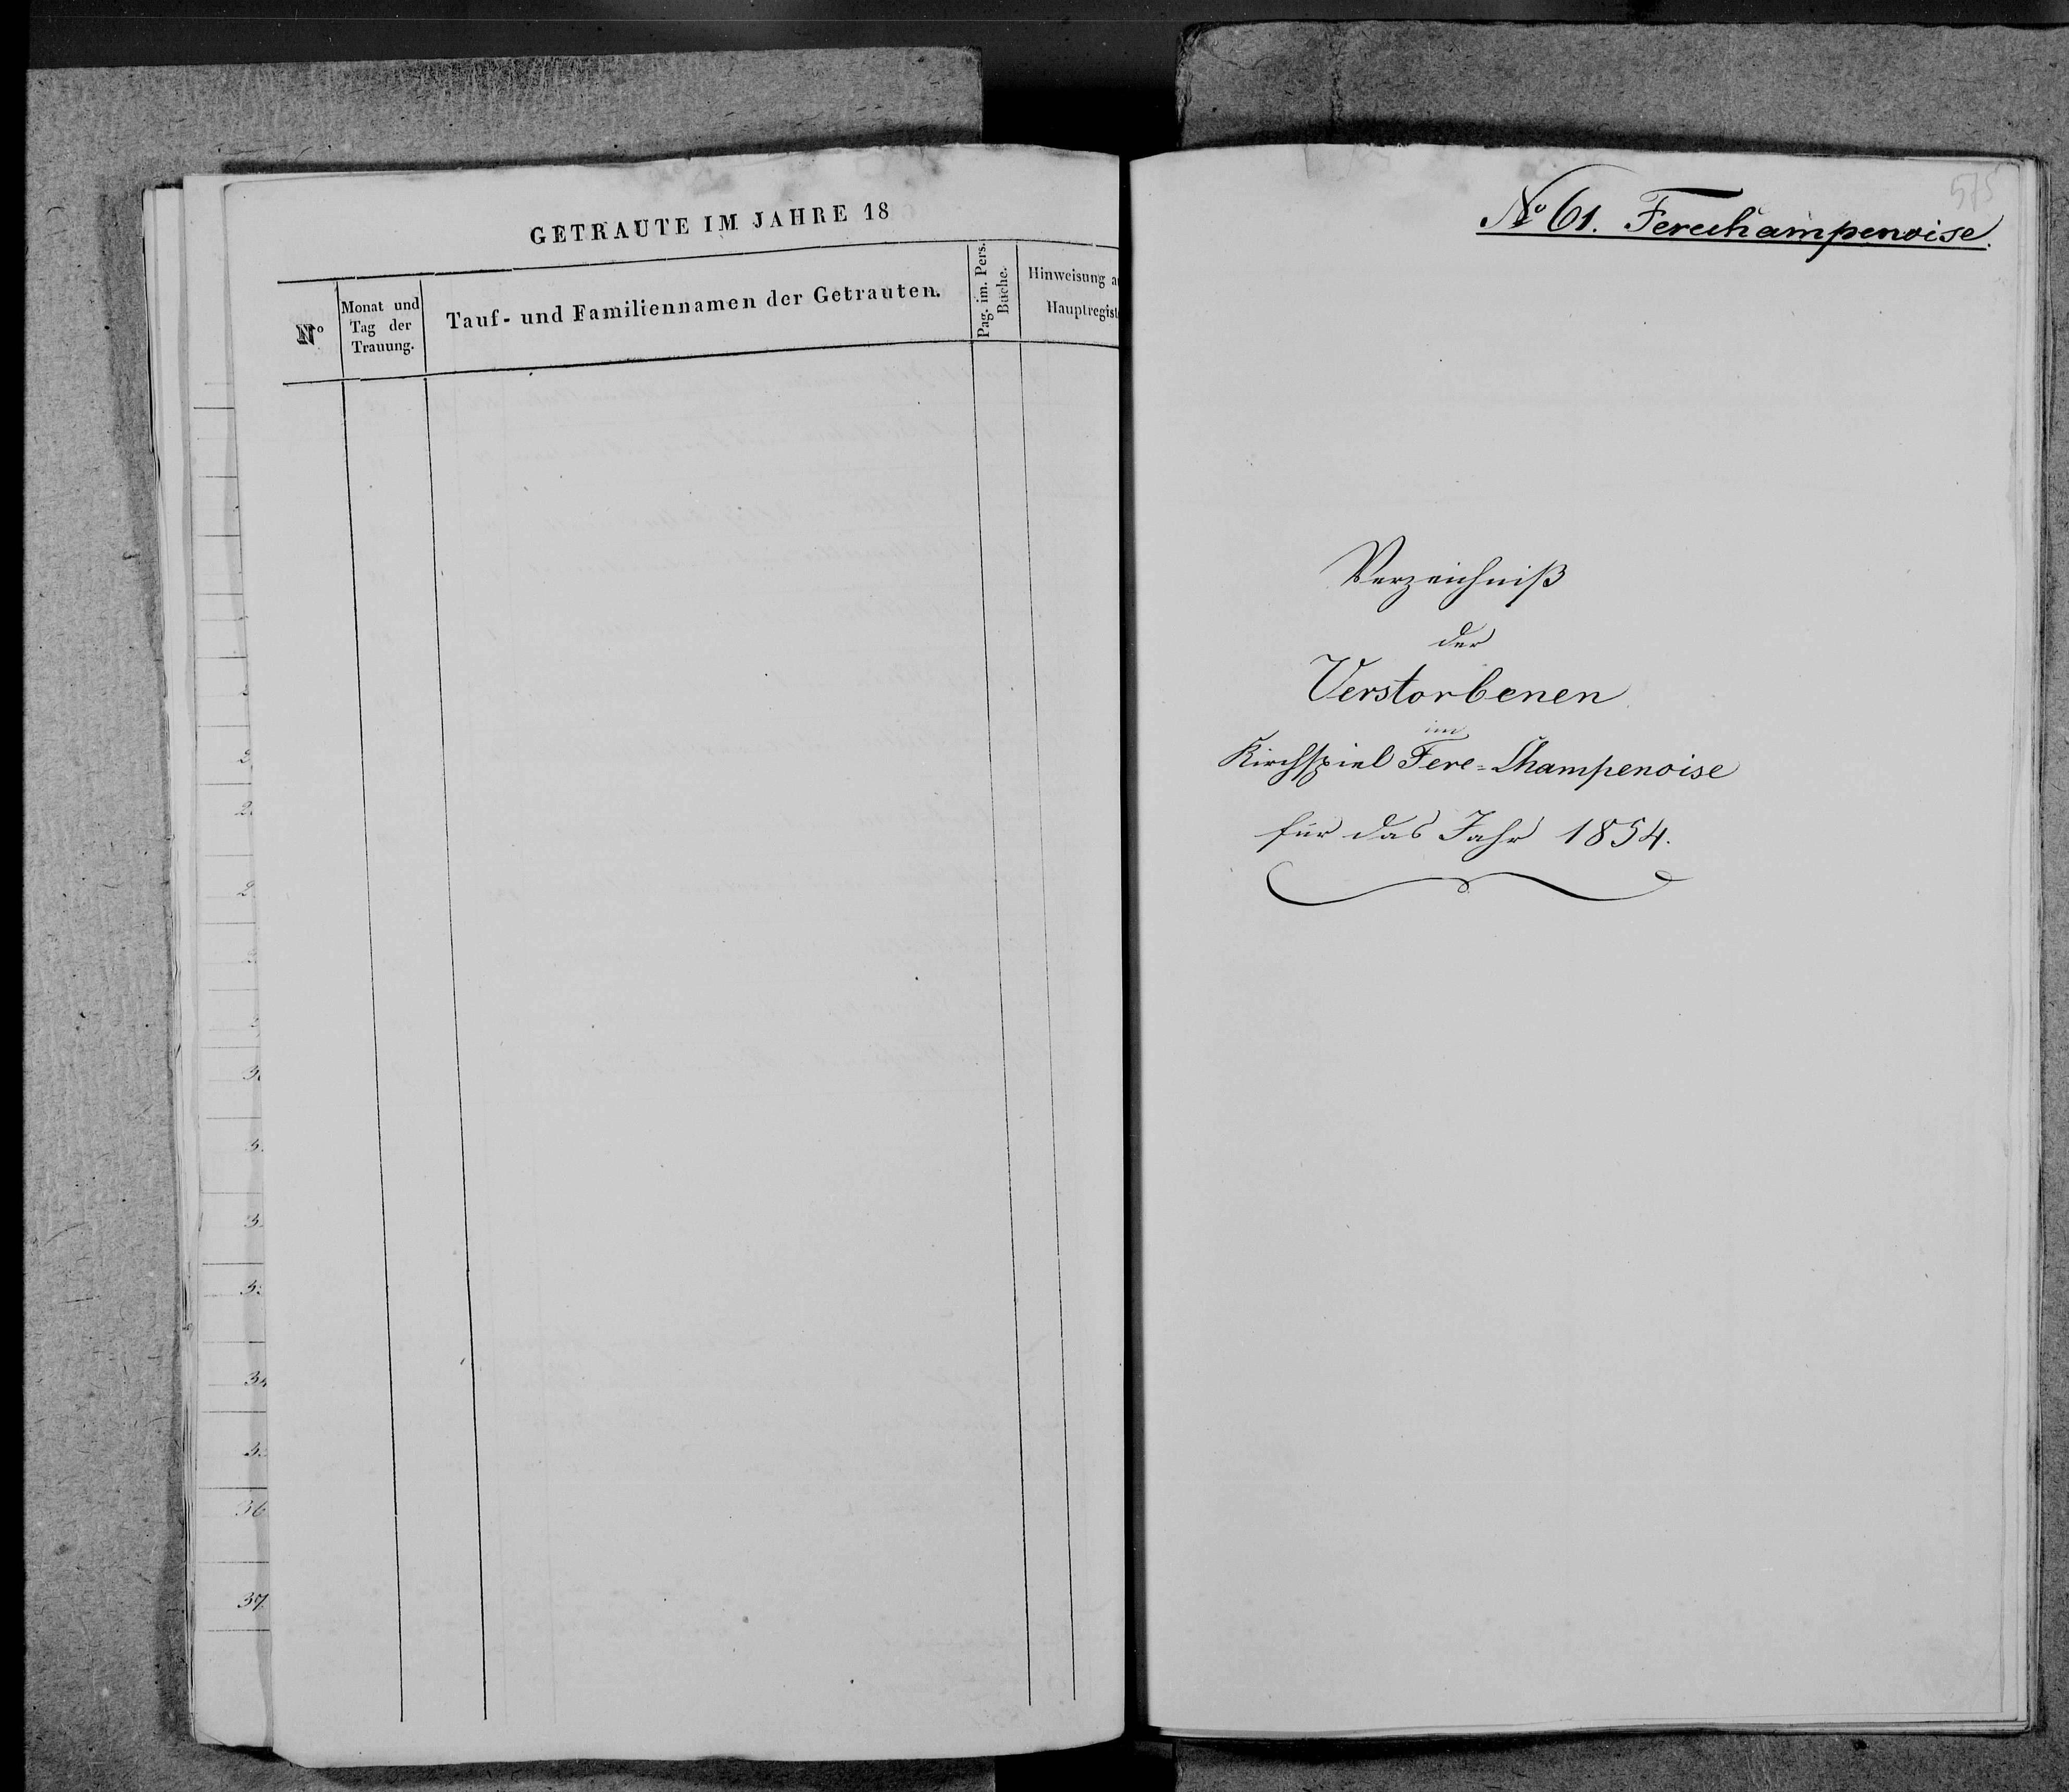 GETRAUTE IM JAHRE 18
N°
Monat und
Tag der
Trauung.
Tauf- und Familiennamen der Getrauten.
Pag. im. Pers.
Buche.
Hinweisung a
Hauptregist
36
37.
575
N° 61. Ferechampenoise.
Verzeichniß
der
Verstorbenen
im
Kirchspiel Fere=Champenoise
für das Jahr 1854.